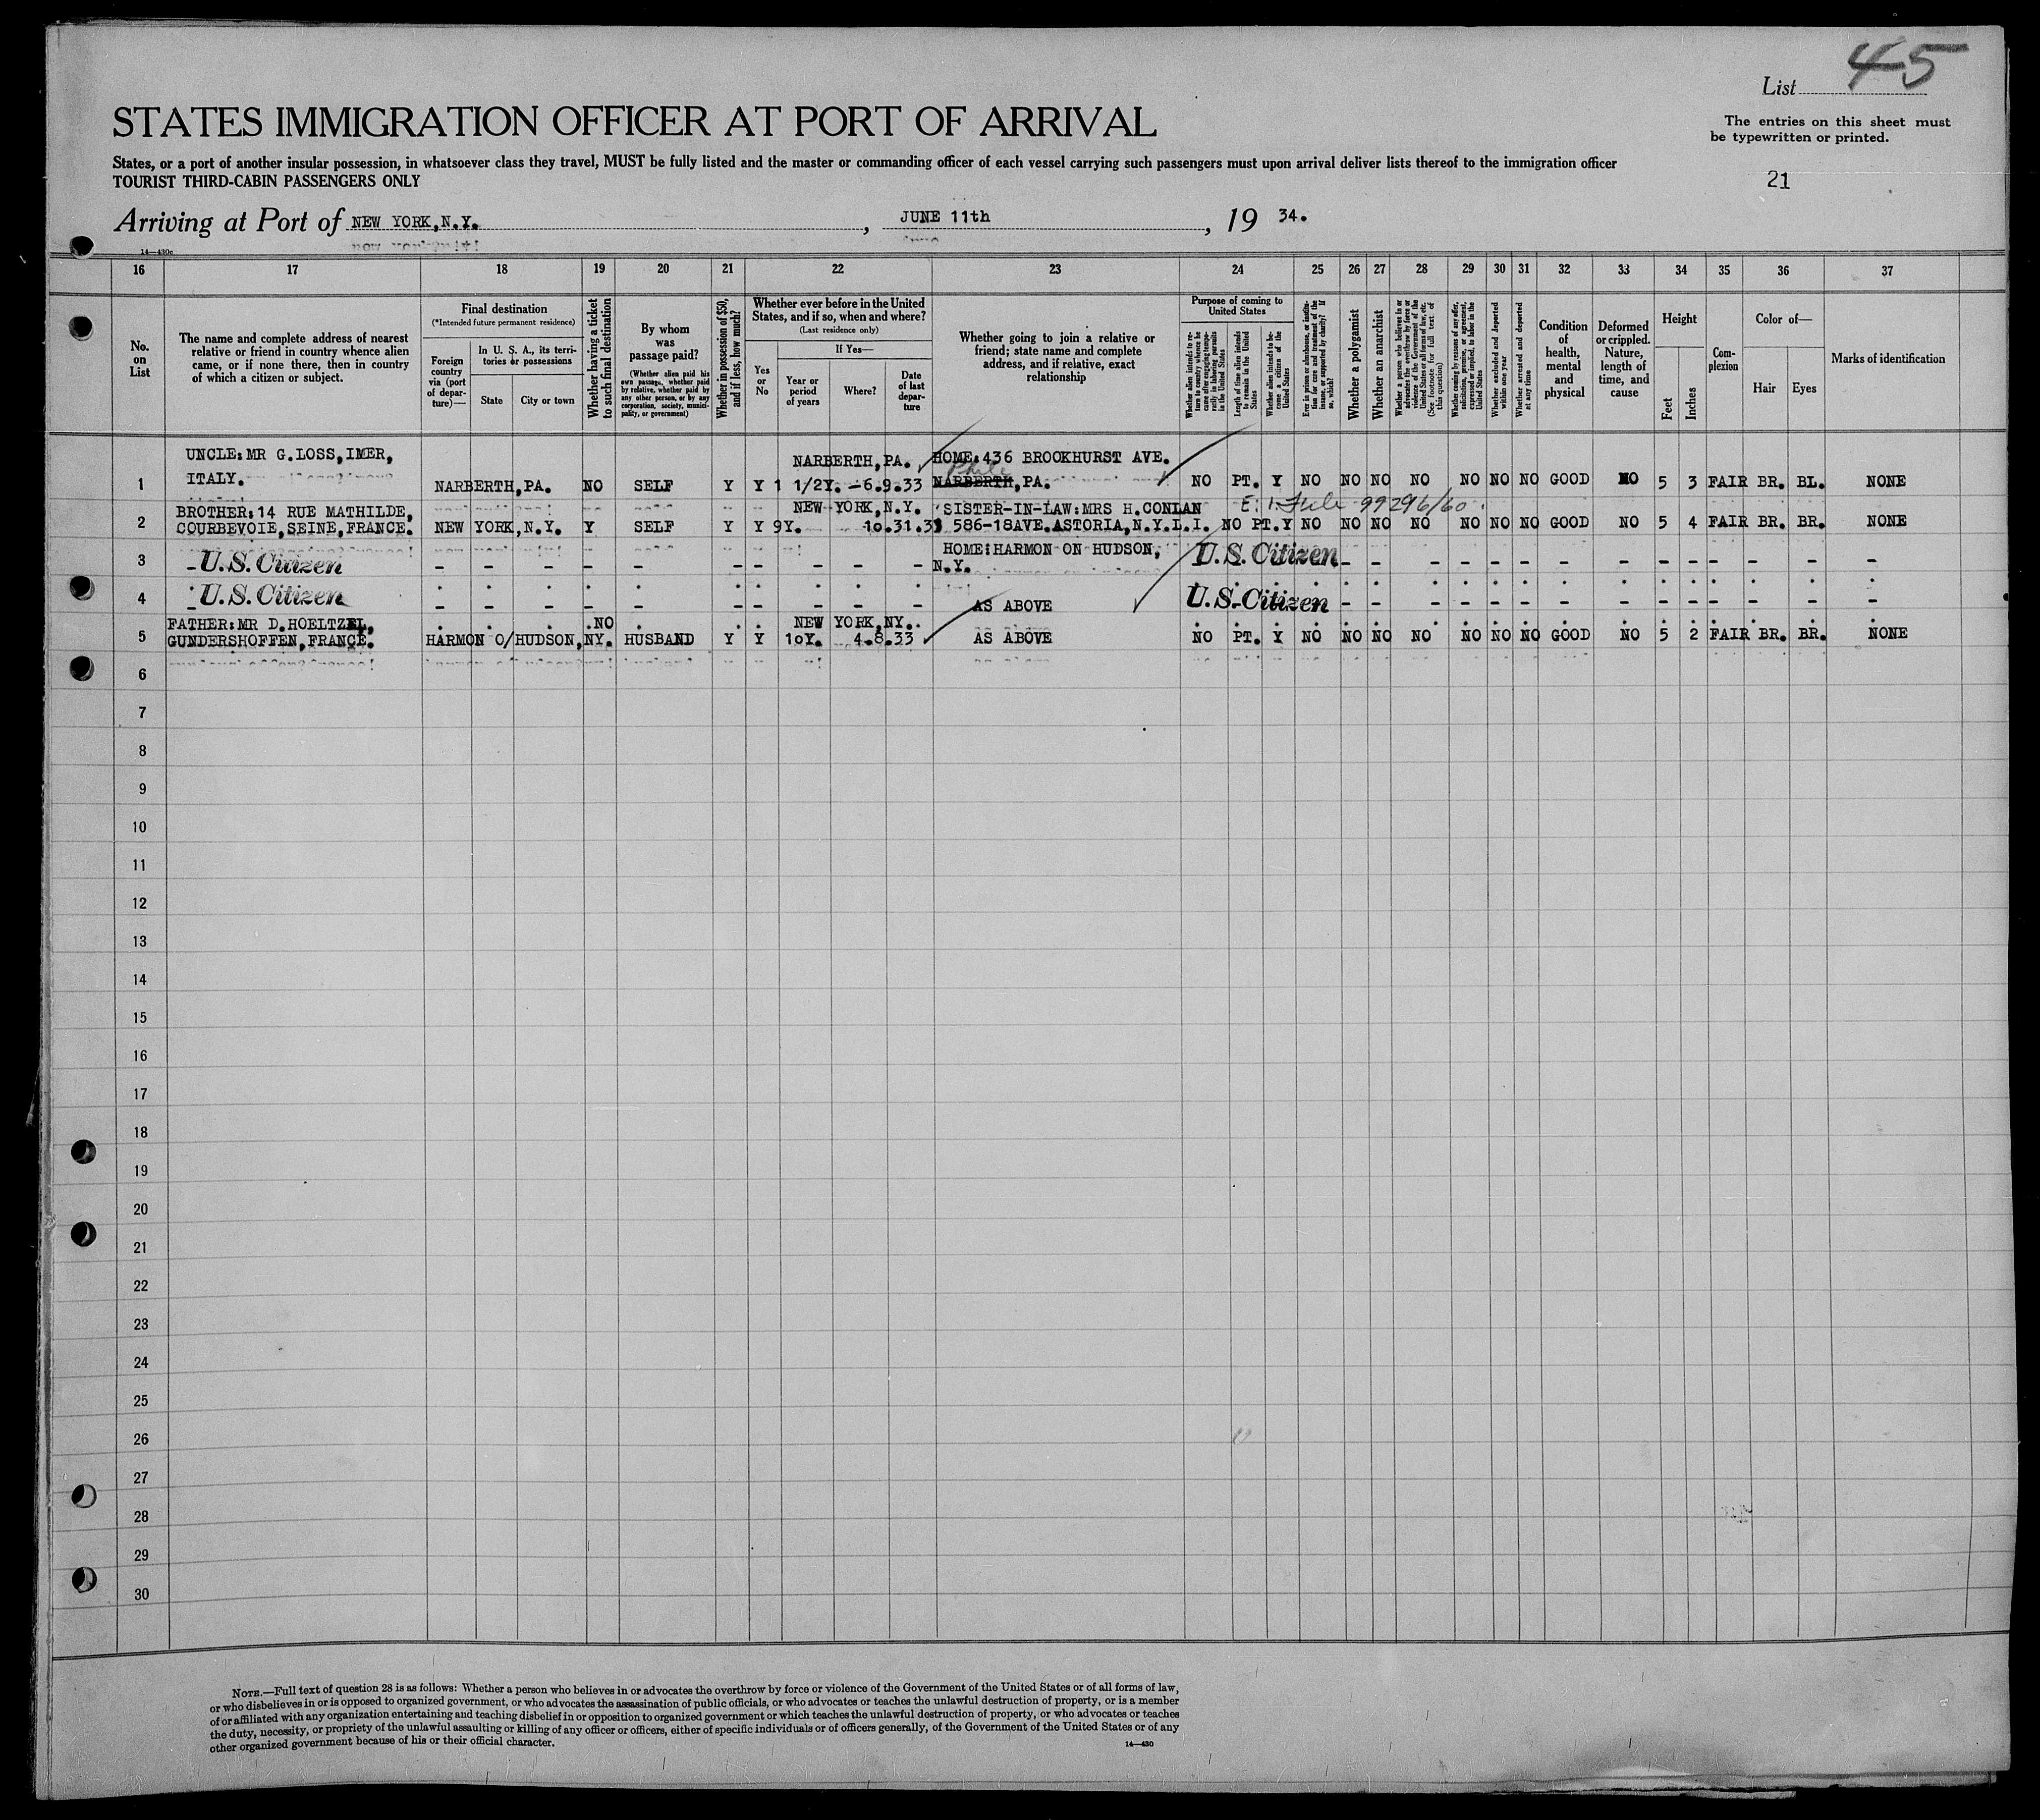 List 45
STATES IMMIGRATION OFFICER AT PORT OF ARRIVAL
The entries on this sheet must
be typewritten or printed.
States, or a port of another insular possession, in whatsoever class they travel, MUST be fully listed and the master or commanding officer of each vessel carrying such passengers must upon arrival deliver lists thereof to the immigration officer
TOURIST THIRD-CABIN PASSENGERS ONLY
21
Arriving at Port of NEW YORK,N.Y. , JUNE 11th , 19 34.
14—430c
16 17 18 19 20 21 22 23 24 25 26 27 28 29 30 31 32 33 34 35 36 37
No. on List
The name and complete address of nearest
relative or friend in country whence alien
came, or if none there, then in country
of which a citizen or subject.
Final destination
(*Intended future permanent residence)
Foreign country via (port of departure)—
In U. S. A., its territories or possessions
State
City or town
Whether having a ticket to such final destination
By whom was passage paid?
(Whether alien paid his own passage, whether paid by relative, whether paid by any other person, or by any corporation, society, municipality, or government)
Whether in possession of $50, and if less, how much?
Whether ever before in the United
States, and if so, when and where?
(Last residence only)
Yes or No
If Yes—
Year or period of years
Where?
Date of last departure
Whether going to join a relative or
friend; state name and complete
address, and if relative, exact
relationship
Purpose of coming to United States
Whether alien intends to return to country whence he came after engaging temporarily in laboring pursuits in the United States
Length of time alien intends to remain in the United States
Whether alien intends to become a citizen of the United States
Ever in prison or almshouse, or institution for care and treatment of the insane, or supported by charity? If so, which?
Whether a polygamist
Whether an anarchist
Whether a person who believes in or advocates the overthrow by force or violence of the Government of the United States or of all forms of law, etc. (See footnote for full text of this question)
Whether coming by reasons of any offer, solicitation, promise, or agreement, expressed or implied, to labor in the United States
Whether excluded and deported within one year
Whether arrested and deported at any time
Condition of health, mental and physical
Deformed or crippled. Nature, length of time, and cause
Height
Feet
Inches
Complexion
Color of—
Hair
Eyes
Marks of identification
UNCLE:MR G.LOSS,IMER, NARBERTH,PA. HOME:436 BROOKHURST AVE.
Phila
1 ITALY. NARBERTH,PA. NO SELF Y Y 1 1/2Y. —6.9.33 NARBERTH,PA. NO PT. Y NO NO NO NO NO NO NO GOOD NO 5 3 FAIR BR. BL. NONE
BROTHER:14 RUE MATHILDE, NEW YORK,N.Y. SISTER-IN-LAW:MRS H.CONLAN 99296/60
2 COURBEVOIE,SEINE,FRANCE. NEW YORK,N.Y. Y SELF Y Y 9Y. 10.31.33 586-18AVE.ASTORIA,N.Y.L.I. NO PT.Y NO NO NO NO NO NO NO GOOD NO 5 4 FAIR BR. BR. NONE
HOME:HARMON ON HUDSON,
3 U.S. Citizen – – – – – – – – – – N.Y. U.S. Citizen – – – – – – – – – – – – – –
4 U.S. Citizen – – – – – – – – – – AS ABOVE U.S. Citizen – – – – – – – – – – – – – –
FATHER:MR D.HOELTZEL, NO NEW YORK,NY.
5 GUNDERSHOFFEN,FRANCE. HARMON O/HUDSON,NY. HUSBAND Y Y 10Y. 4.8.33 AS ABOVE NO PT. Y NO NO NO NO NO NO NO GOOD NO 5 2 FAIR BR. BR. NONE
6
7
8
9
10
11
12
13
14
15
16
17
18
19
20
21
22
23
24
25
26
27
28
29
30
NOTE.—Full text of question 28 is as follows: Whether a person who believes in or advocates the overthrow by force or violence of the Government of the United States or of all forms of law,
or who disbelieves in or is opposed to organized government, or who advocates the assassination of public officials, or who advocates or teaches the unlawful destruction of property, or is a member
of or affiliated with any organization entertaining and teaching disbelief in or opposition to organized government or which teaches the unlawful destruction of property, or who advocates or teaches
the duty, necessity, or propriety of the unlawful assaulting or killing of any officer or officers, either of specific individuals or of officers generally, of the Government of the United States or of any
other organized government because of his or their official character.
14—430